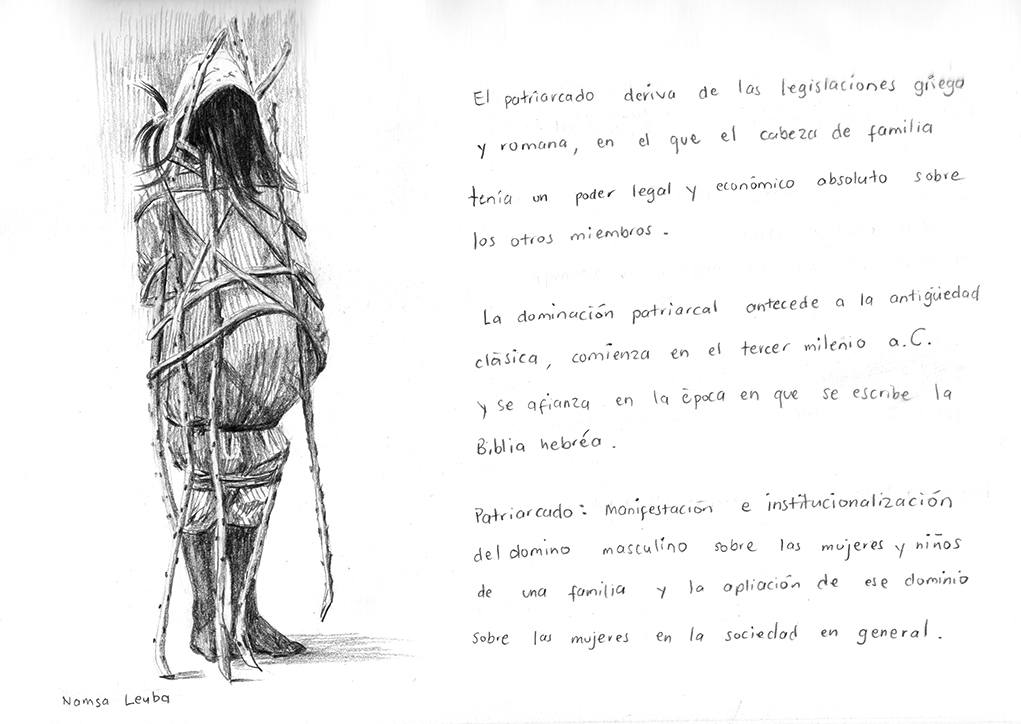 El patriarcado deriva de las legislaciones griega
y romana, en el que el cabeza de familia
tenía un poder legal y económico absoluto sobre
los otros miembros.
La dominación patriarcal antecede a la antigüedad
clásica, comienza en el tercer milenio a.C.
y se afianza en la época en que se escribe la
Biblia hebréa.
Patriarcado: Manifestación e institucionalización
del domino masculino sobre las mujeres y niños
de una familia y la apliación de ese dominio
sobre las mujeres en la sociedad en general.
Namsa Leuba